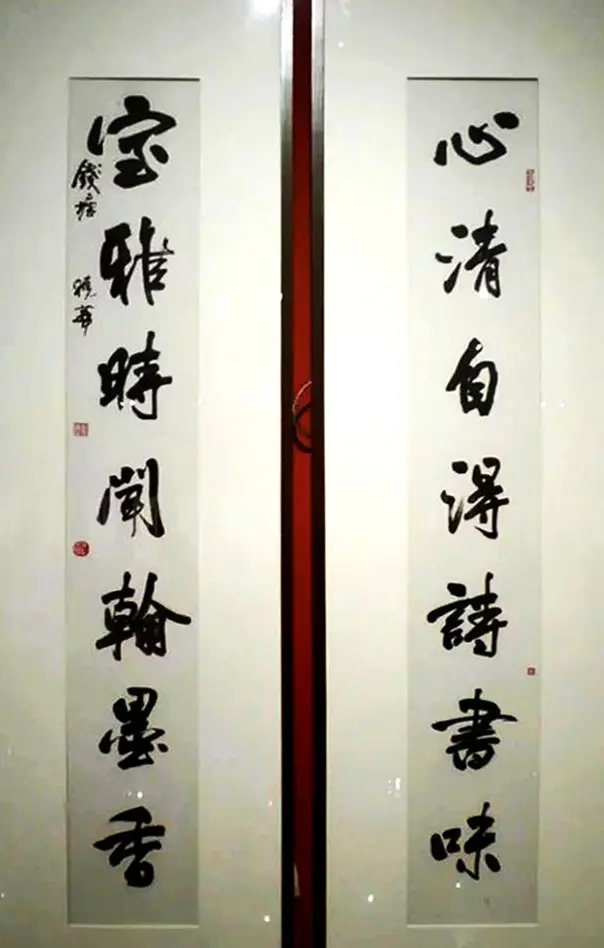 心清自得詩書味
室雅時聞翰墨香
錢塘 曉華